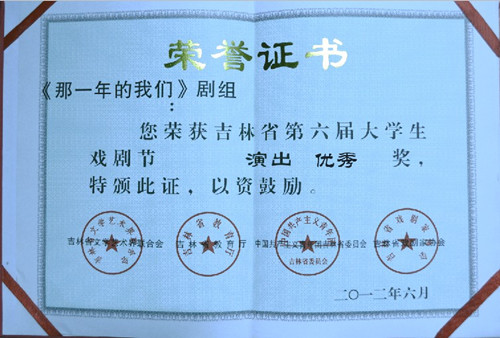 荣誉证书
《那一年的我们》剧组
：
您荣获吉林省第六届大学生
戏剧节 演出 优秀 奖，
特颁此证，以资鼓励。
吉林省文学艺术界联合会 吉林省教育厅 吉林省委员会
吉林省教育厅
吉林省委员会
二〇一二年六月